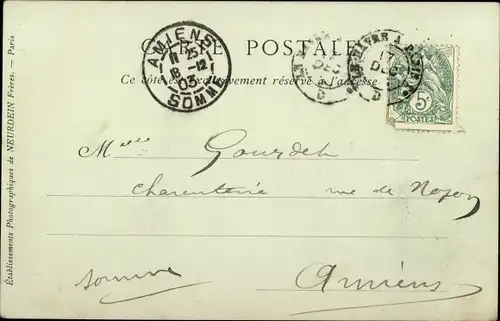 CARTE POSTALE
Ce côté est exclusivement réservé à l'adresse
AMIENS
11 25
18 -12
03
SOMME
LE HAVRE A PARIS
17
DEC
D
DEC
D
5c
Melle Gourdel
Charcuterie rue de Noyon
Somme
Amiens
Établissements Photographiques de NEURDEIN Frères. — Paris